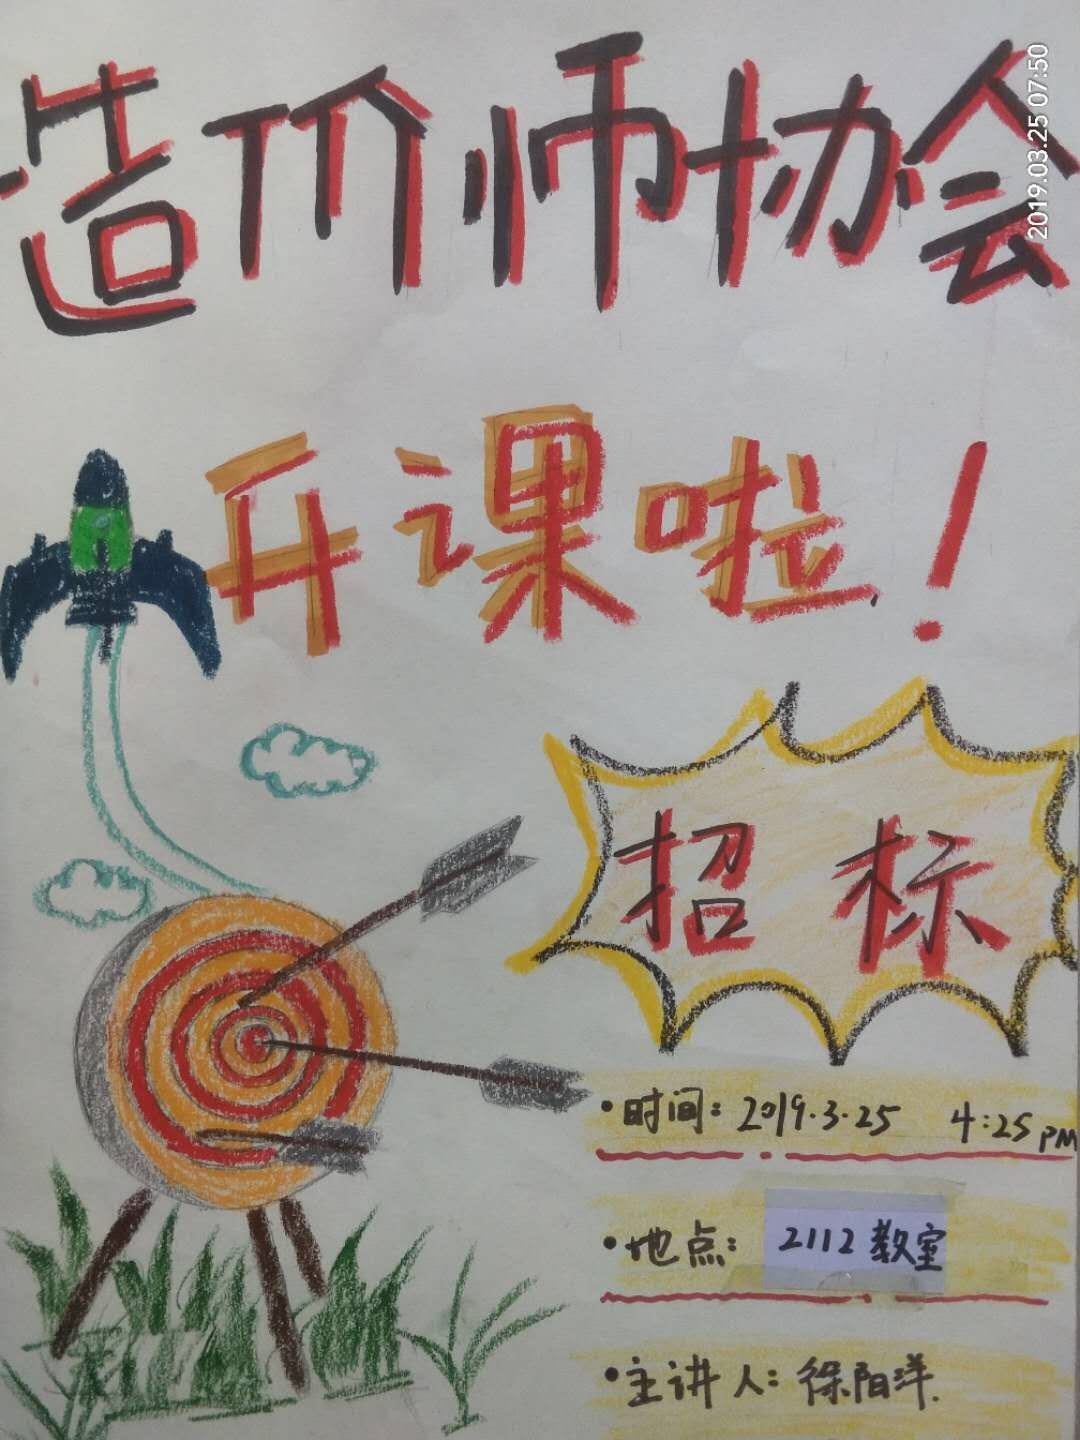 造价师协会
开课啦!
招标
•时间: 2019.3.25 4:25PM
•地点: 2112教室
•主讲人: 徐阳洋.
2019.03.25 07:50